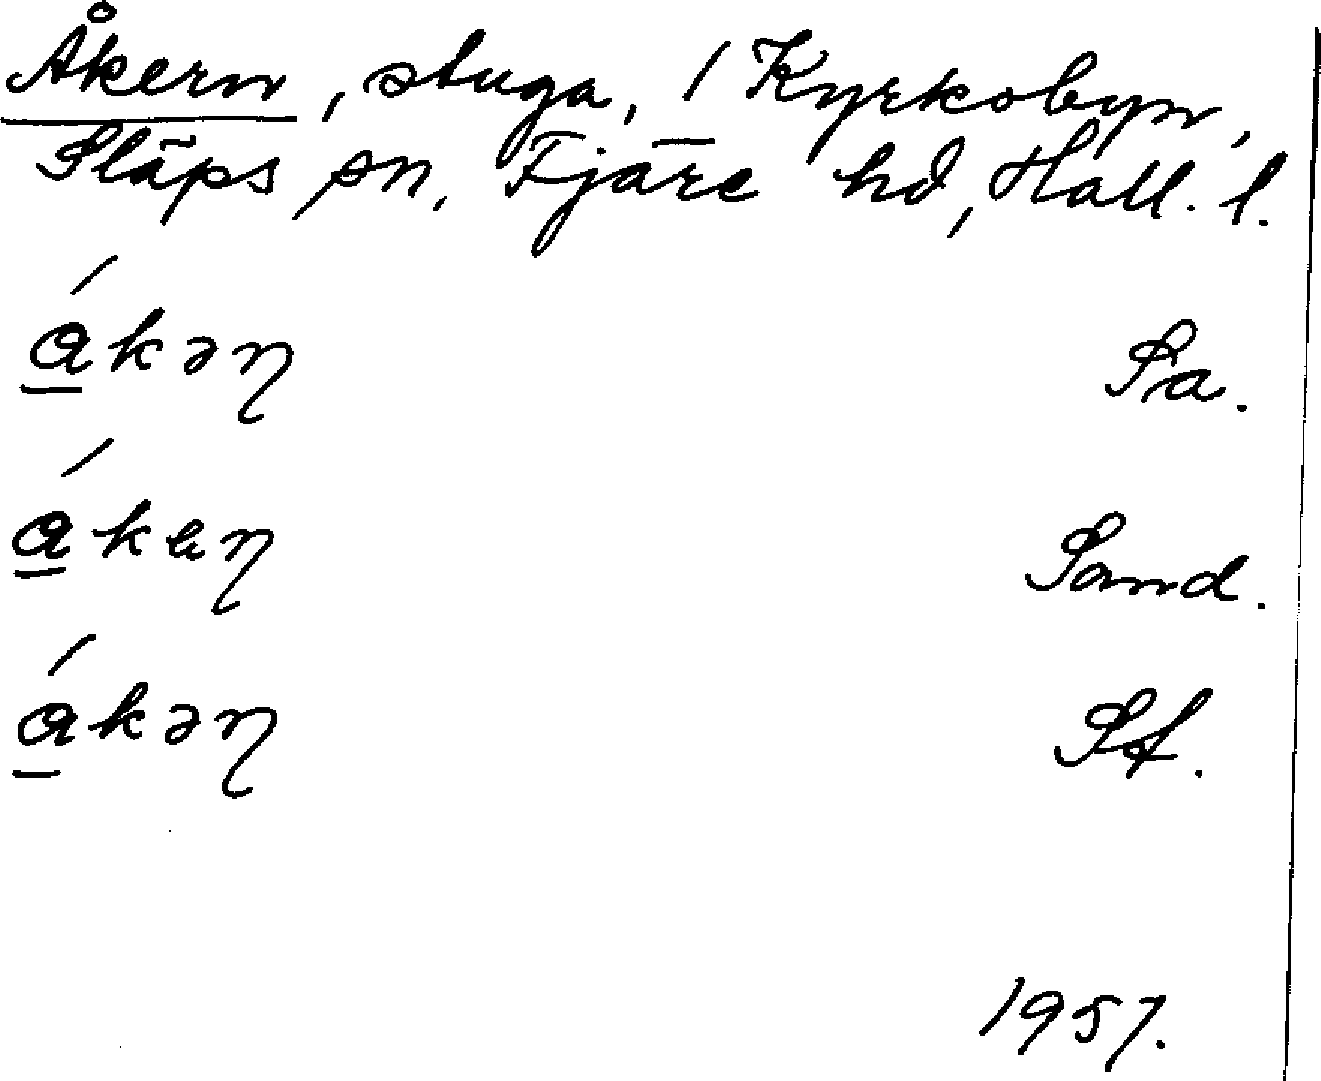 Åkern, stuga, i Kyrkobyn,
Släps sn, Fjäre hd, Hall. l.
ákəɳ Sa.
ákɐɳ Sand.
ákəɳ Sf.
1957.